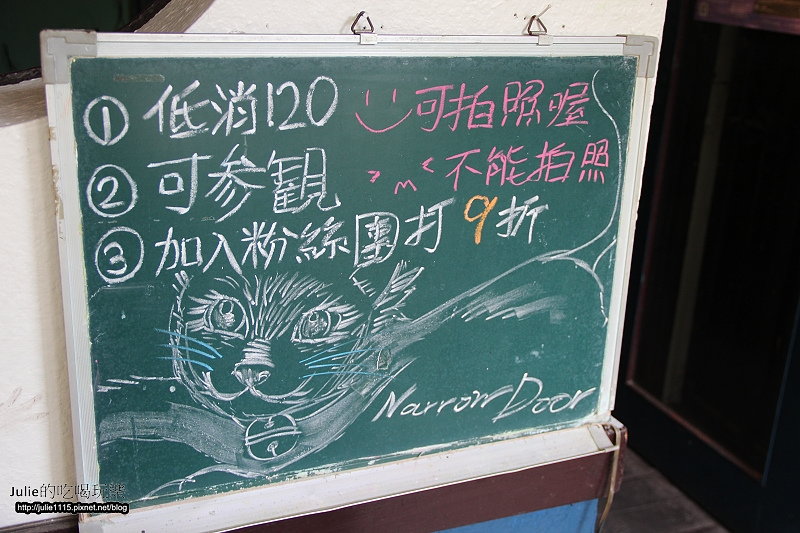 ① 低消120 可拍照喔
② 可參観 不能拍照
③ 加入粉絲團打9折
Narrow Door
Julie的吃喝玩樂
http://julie1115.pixnet.net/blog